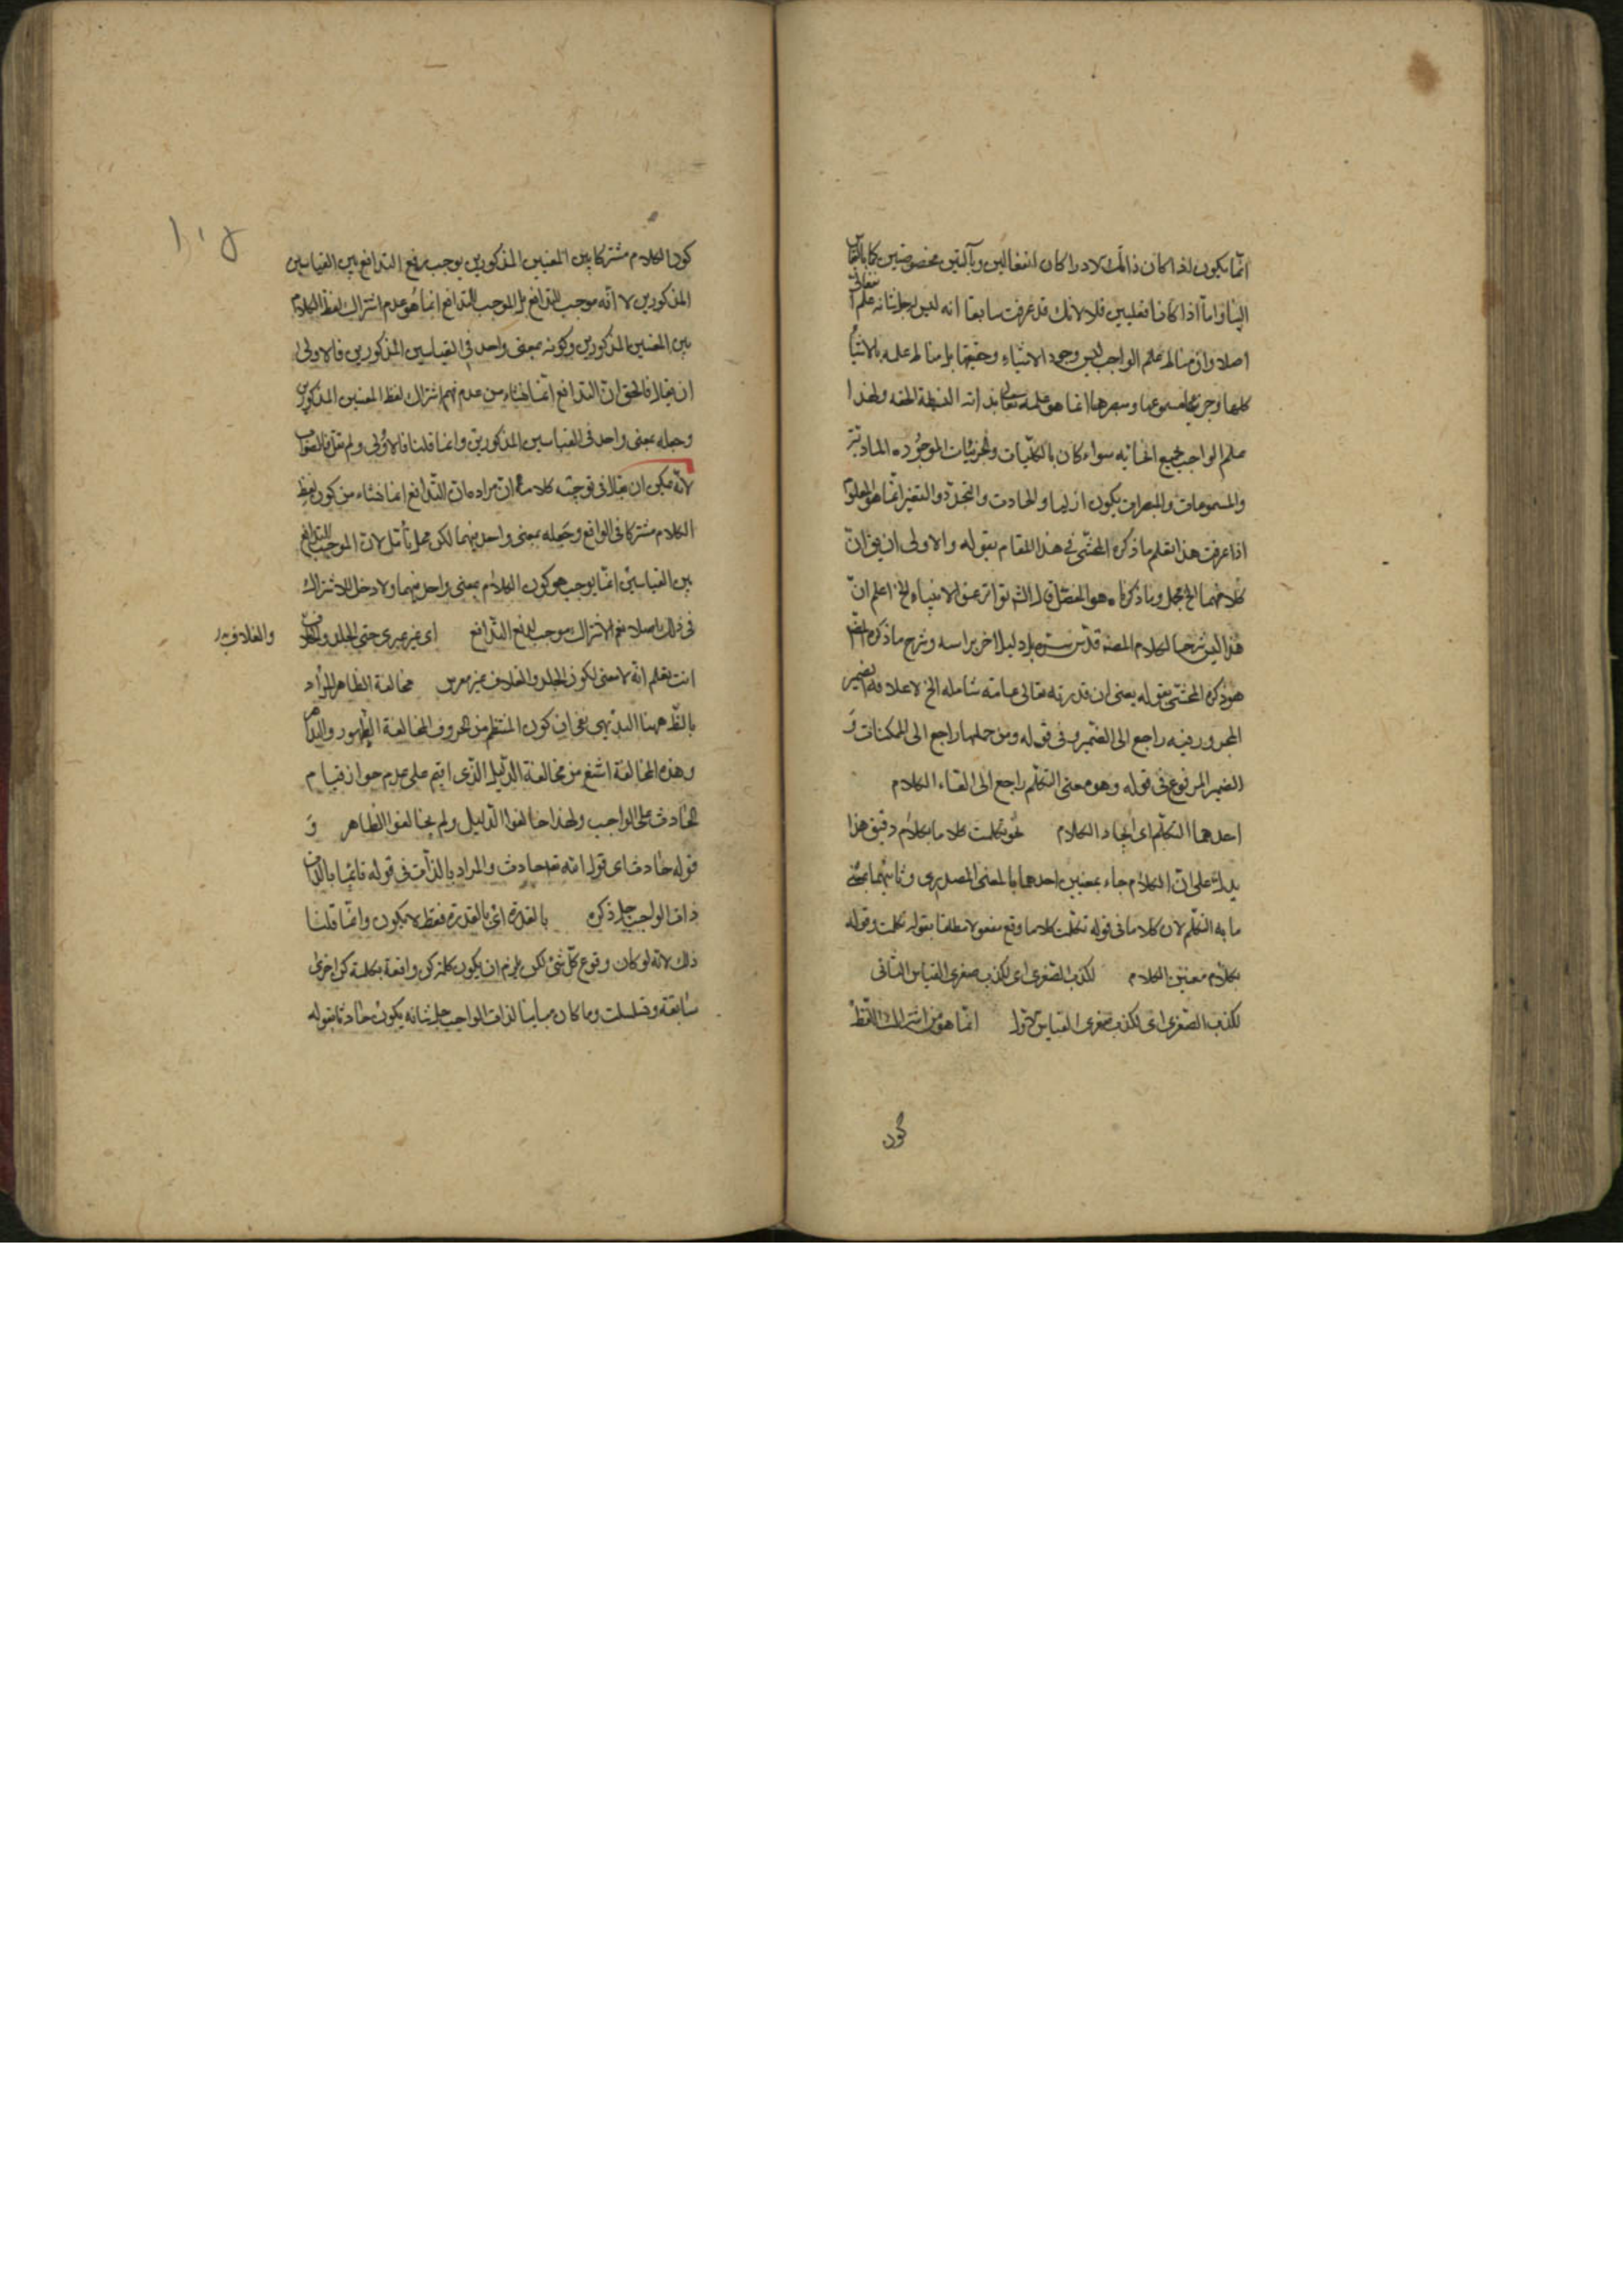 انما يكون لذا كان ذانك الادراكان انفعاليين وبآلتين مخصوصتين كما بالقياس
الينا واما اذا كانا فعليين فلا لانك قد عرفت سابقا انه ليس لجل شانه علم انفعالى
اصلا وان مناط علم الواجب ليس وجود الاشياء وحقيقتها بل مناط علمه بالاشياء
كلها وجزئها مسموعها ومبصرها انما هو علمه تعالى بذاته البسيطة الحقه ولهذا
علم الواجب بجميع انحائه سواء كان بالكليات والجزئيات الموجودة المادية
والمسموعات والمبصرات يكون ازليا والحادث والتجدد والتغير انما هو المعلوم
اذا عرفت هذا تعلم ما ذكره المحشى فى هذا المقام بقوله والاولى ان يق ان
كلامهما الخ مجمل وما ذكرناه هو المفصل قال الش تواتر عن الانبياء الخ اعلم ان
هذا ليس شرحا لكلام المصنف قدس سره بل دليل اخر براسه وشرح ما ذكره المص
هو ذكره المحشى بقوله يعنى ان قدرته تعالى عامة شامله الخ لا علاقه الضمير
المجرور فيه راجع الى الضمير وفى قوله ومن جملها راجع الى الممكنات و
الضمير المرفوع فى قوله وهو معنى التكلم راجع الى القاء الكلام
احدهما التكلم اى ايجاد الكلام نحو تكلمت كلاما بكلام دقيق هذا
يدل على ان الكلام جاء بمعنيين احدهما بالمعنى المصدرى وثانيهما بمعنى
ما به التكلم لان كلاما فى قوله تكلمت كلاما وقع مفعولا مطلقا بقوله تكلمت وقوله
بكلام معنيى الكلام لكذب الصغرى اى لكذب صغرى القياس الثانى
لكذب الصغرى اى لكذب صغرى القياس الاول انما هو من اشتراك اللفظ
كون
كون الكلام مشتركا بين المعنيين المذكورين يوجب رفع التدافع بين القياسين
المذكورين لا انه موجب للتدافع بل الموجب للتدافع انما هو عدم اشتراك لفظ الكلام
بين المعنيين المذكورين وكونه بمعنى واحد فى القياسين المذكورين فالاولى
ان يقال فالحق ان التدافع انما نشاء من عدم فهم اشتراك لفظ المعنيين المذكورين
وجعله بمعنى واحد فى القياسين المذكورين وانما قلنا فالاولى ولم نقل فالصواب
لانه يمكن ان يقال فى توجيه كلامه ان مراده ان التدافع انما نشاء من كون لفظ
الكلام مشتركا فى الواقع وجعله بمعنى واحد فيهما لكن محل تأمل لان الموجب للتدافع
بين القياسين انما يوجب هو كون الكلام بمعنى واحد فيهما ولا دخل للاشتراك
فى ذلك اصلا نعم الاشتراك موجب لدفع التدافع اى غير عربى حتى الجلد والغلاف
والغلاف
انت تعلم انه لا معنى لكون الجلد والغلاف غير عربى مخالفة الظاهر المراد
بالظ ههنا البديهى يعنى ان كون المنتظم من الحروف المخالفة الظهور والبداهة
وهذه المخالفة اشنع من مخالفة الدليل الذى اقيم على عدم جواز قيام
الحادث على الواجب ولهذا خالفوا الدليل ولم يخالفوا الظاهر و
قوله حادث اى قوله انه حادث والمراد بالذات فى قوله قائما بالذات
ذات الواجب جل ذكره بالقدرة اى بالقدرة فقط لا يكون وانما قلنا
ذلك لانه لو كان وقوع كل شئ لكن يلزم ان يكون كلمة كن واقعة بكلمة كن اخرى
سابقة وتسلسلت وما كان مباينا لذات الواجب جل شانه يكون حادثا بقوله